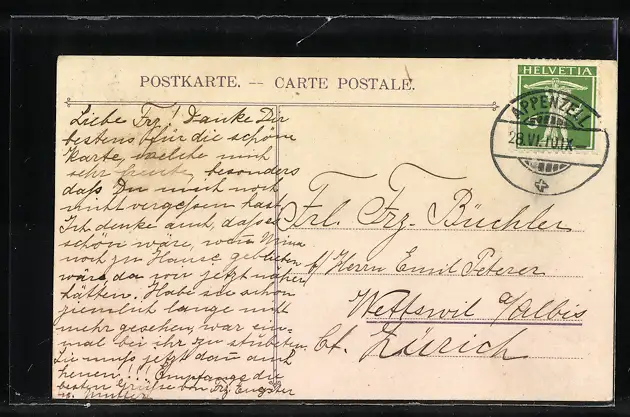 POSTKARTE. -- CARTE POSTALE.
HELVETIA
APPENZELL
28.VI.10.IX
Liebe Frz! Danke Dir
bestens für die schöne
Karte, welche mich
sehr freute, besonders
dass Du mich noch
nicht vergessen hast.
Ich denke auch, dass es
schön wäre, wenn Mina
noch zu Hause geblieben
wäre, da wir jetzt näher
hätten. Habe sie schon
ziemlich lange nicht
mehr gesehen, war ein-
mal bei ihr zu stubeten.
Sie muss jetzt dann auch
heuen!!! Empfange die
besten Grüsse von Frz. Engster
u. Mutter.
Frl. Frz. Büchler
b/ Herrn Emil Peterer
Wettswil a/Albis
Ct. Zürich